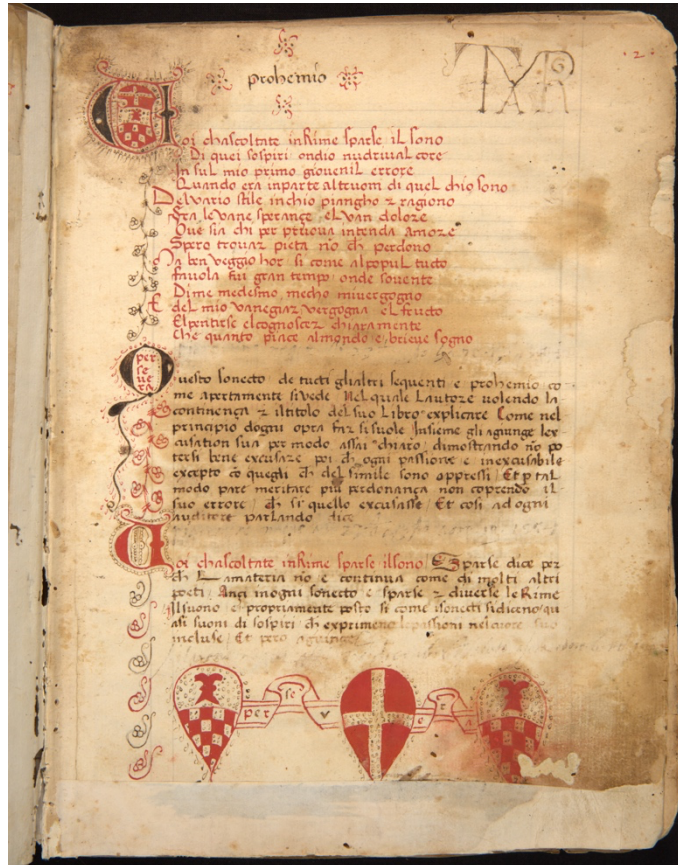 · 2 ·
TXR
prohemio
Voi chascoltate inRime sparse il sono
Di quei sospiri ondio nudrival core
In sul mio primo giovenil errore
Quando era inparte altruom di quel chio sono
Del vario stile inchio piangho z ragiono
fra levane sperançe el van dolore
Ove sia chi per pruova intenda amore
Spero trovar pieta nō ch perdono
Ma ben veggio hor si come alpopul tucto
favola fui gran tempo onde sovente
Di me medesmo mecho mivergogno
E del mio vanegiar vergogna el fructo
El pentirse el cognoscer chiaramente
Che quanto piace almondo e brieve sogno
per
se
ve
ra
Questo sonecto de tucti glialtri sequenti e prohemio co
me apertamente sivede Nel quale Lautore volendo la
continença z iltitolo del suo Libro explicare Come nel
principio dogni opra far sisuole Insieme gli agiunge lex
cusation sua per modo assai chiaro dimostrando nō po
tersi bene excusare poi ch ogni passione e inexcusabile
excepto cō quegli ch del simile sono oppressi Et p tal
modo pare meritare piu perdonança non coprendo il
suo errore ch si quello excusasse Et cosi ad ogni
auditore parlando dice
Voi chascoltate inRime sparse ilsono Sparse dice per
ch Lamateria nō e continua come di molti altri
poeti Ançi inogni sonecto e sparse z diverse le Rime
Ilsuono e propriamente posto si come isonecti sidiceno qu
asi suoni di sospiri ch exprimeno lepassioni nelcuore suo
incluse Et pero agiunge
per se v e r a